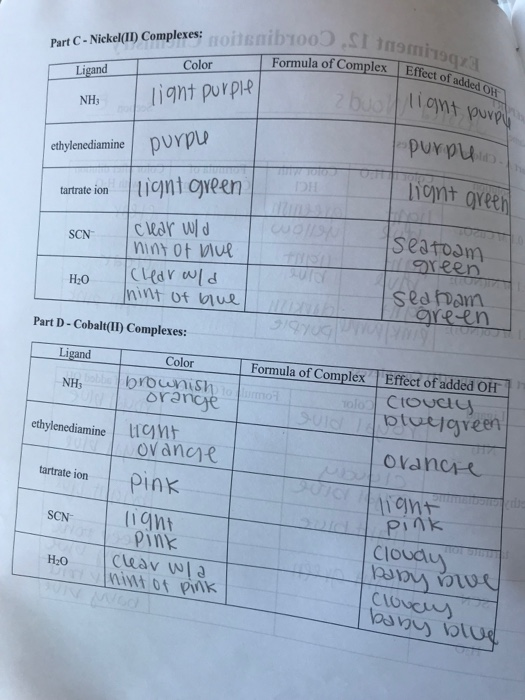 Experiment 12. Coordination Chemistry
Part C - Nickel(II) Complexes:
Ligand Color Formula of Complex Effect of added OH⁻
NH₃ light purple light purple
ethylenediamine purple purple
tartrate ion light green light green
SCN⁻ clear w/a hint of blue seafoam green
H₂O clear w/a hint of blue seafoam green
Part D - Cobalt(II) Complexes:
Ligand Color Formula of Complex Effect of added OH⁻
NH₃ brownish orange cloudy blue/green
ethylenediamine light orange orange
tartrate ion pink light pink
SCN⁻ light pink cloudy baby blue
H₂O clear w/a hint of pink cloudy baby blue